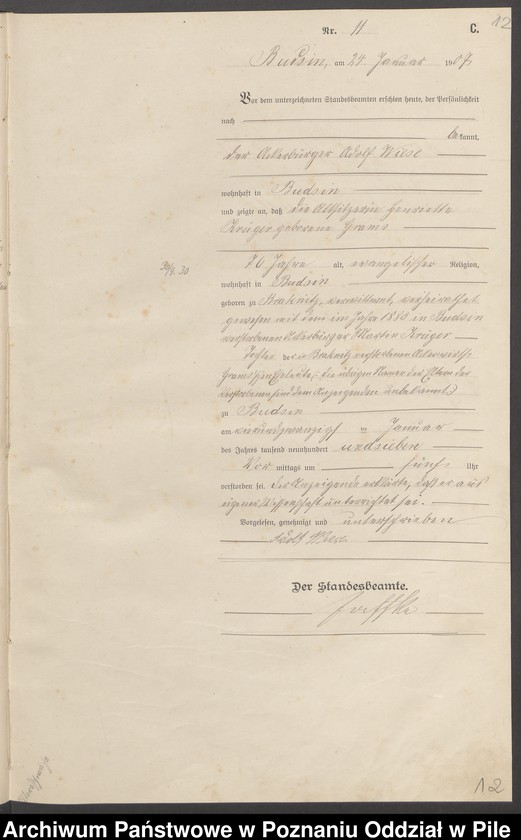 12
Nr. 11 C.
Budsin, am 24. Januar 1907
Vor dem unterzeichneten Standesbeamten erschien heute, der Persönlichkeit
nach
bekannt,
der Ackerbürger Adolf Wiese
wohnhaft in Budsin
und zeigte an, daß die Altsitzerin Henriette
Krüger geborene Grams
70 Jahre alt, evangelischer Religion,
wohnhaft in Budsin
geboren zu verwittwet, verheirathet
gewesen mit dem im Jahre in Budsin
verstorbenen Ackerbürger Martin Krüger
Tochter der in verstorbenen
Grams'schen Eheleute, die übrigen Namen der Eltern der
Verstorbenen sind dem Anzeigenden unbekannt
zu Budsin
am vierundzwanzigsten Januar
des Jahres tausend neunhundert und sieben
Vor mittags um fünf Uhr
verstorben sei. Der Anzeigende erklärte, daß er aus
eigener Wissenschaft unterrichtet sei.
Vorgelesen, genehmigt und unterschrieben
Adolf Wiese
Der Standesbeamte.
12
Archiwum Państwowe w Poznaniu Oddział w Pile